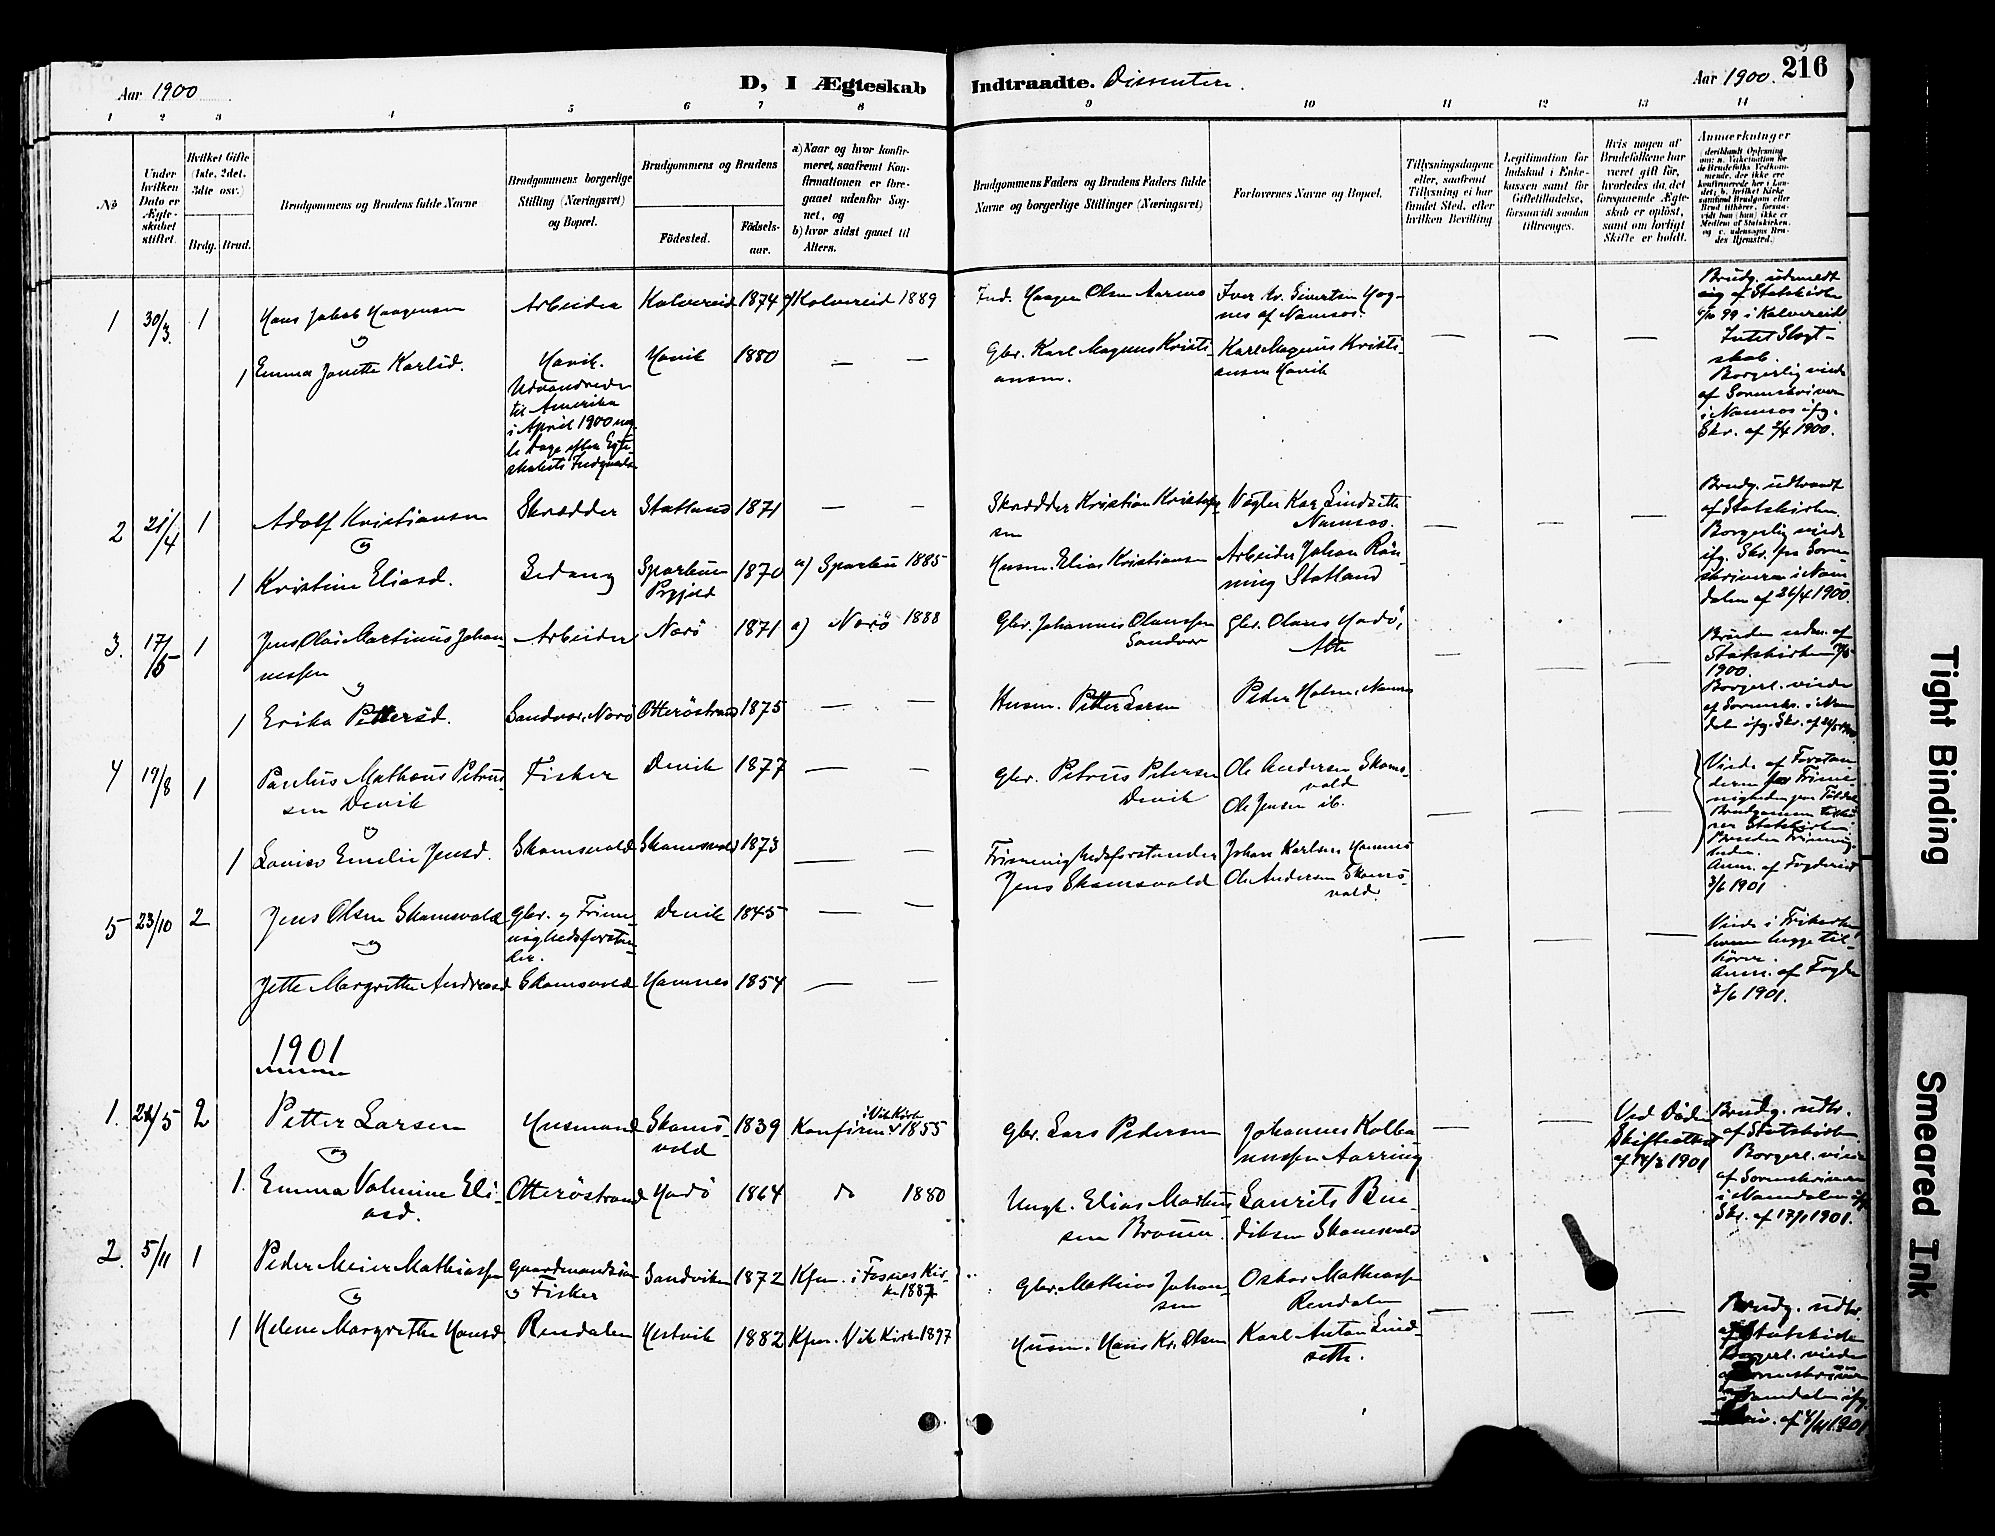 Aar 1900
D, I Ægteskab
Indtraadte. Dissentere.
Aar 1900.
216
1 2 3 4 5 6 7 8 9 10 11 12 13 14
№
Under
hvilken
Dato er
Ægte-
skabet
stiftet.
Hvilket Gifte
(1ste, 2det,
3die osv.)
Brdg. Brud.
Brudgommens og Brudens fulde Navne
Brudgommens borgerlige
Stilling (Næringsvei)
og Bopæl.
Brudgommens og Brudens
Fødested.
Fødsels-
aar.
a) Naar og hvor konfir-
meret, saafremt Kon-
firmationen er fore-
gaaet udenfor Sog-
net, og
b) hvor sidst gaaet til
Alters.
Brudgommens Faders og Brudens Faders fulde
Navne og borgerlige Stillinger (Næringsvei)
Forlovernes Navne og Bopæl.
Tillysningsdagene
eller, saafremt
Tillysning ei har
fundet Sted, efter
hvilken Bevilling
Legitimation for
Indskud i Enke-
kassen samt for
Giftetilladelse,
forsaavidt saadan
tiltrænges.
Hvis nogen af
Brudefolkene har
været gift før,
hvorledes da det
foregaaende Ægte-
skab er opløst,
samt om lovligt
Skifte er holdt.
Anmærkninger
1 30/3. 1 Hans Jakob Haagensen Arbeider Kolvereid 1874 a) Kolvereid 1889 Ind. Haagen Olsen Aarnes Iver Sivertsen Hog-
nes af Namsos.
Brudg. udmeldt
sig af Statskirken
99 i Kolvereid
Intet Slægt-
skab.
Borgerlig viede
af Sorenskriveren
i Namsos ifg.
Skr. af 2/4 1900.
og
1 Emma Janette Karlsd. Havik. Havik 1880 — — Gbr. Karl Magnus Kristi-
ansen.
Karl Magnus Kristi-
ansen Havik
Udvandrede
til Amerika
i April 1900 nog-
le Dage efter Egte-
skabets Indgaaelse
2 21/4 1 Adolf Kristiansen Skrædder Statland 1871 — — Skrædder Kristian Kristoffer-
sen
Vægter Kar. Lindseth
Namsos.
Brudg. udtraadt
af Statskirken.
Borgerlig viede
ifg. Skr. fra Soren-
skriveren i Nam-
dalen af 26/4 1900.
og
1 Kristine Eliasd. Sparbuen 1870 a) Sparbu 1885 Husm. Elias Kristiansen Arbeider Johan Røn-
ning Statland
3. 17/5 1 Jens Olai Martinus Johan-
nessen
Arbeider Nærø 1871 a) Nærø 1888 Gbr. Johannes Olaussen
Sandvær
Gbr. Olaus Hadø,
Bruden udm. af
Statskirken
1900.
Borgerl. viede
af Sorenskr. i Nam-
dalen ifg. Skr. af
og
1 Erika Pettersd. Sandvær, Nærø Otterøstrand 1875 — — Husm. Petter Larsen Peder Holm, Namsos
4 19/8 1 Paulus Mathæus Petrus-
sen Devik
Fisker Devik 1877 — — Gbr. Petrus Petersen
Devik
Ole Andersen Skoms-
vold
Ole Jensen ib.
Viede af Forstan-
deren for Frime-
nigheden
Brudgommen tilhø-
rer Statskirken
Bruden Frimenig-
heden.
Anm. af Fogderiet
3/6 1901
og
1 Lovise Emilie Jensd. Skomsvold Skomsvold 1873 — — Frimenighedsforstander
Jens Skomsvold
Johan Karlsen Hamnes
Ole Andersen Skoms-
vold.
5 23/10 2 Jens Olsen Skomsvold Gbr. og Frime-
nighedsforstan-
der.
Devik 1845 — —
Viede i Frikirken,
hvem begge til-
hører.
Anm. af Fogden
3/6 1901.
og
Jette Margrethe Andreasd Skomsvold Hamnes 1854 — —
1901
1. 24/5 2 Petter Larsen Husmand Skoms-
vold
1839 Konfirm. i Vik Kirke 1855 Gbr. Lars Pedersen Johannes Kolba-
nussen Aarring
Ved Død
Skifteattest
af 14/3 1901
Brudg. udtr.
af Statskirken
Borgerl. viede
af Sorenskriveren
i Namdalen ifg.
Skr. af 17/1 1901.
og
1. Emma Valmine Eli-
asd.
Otterøstrand Hadø 1864 do 1880 Ungk. Elias Martinus-
sen Brouen.
Laurits Ben-
diksen Skomsvold
2. 5/11 1 Peder Meier Mathiassen Gaardmandssøn
og Fisker
Sandviken 1872 Kfm. i Fosnes Kir-
ke 1887
Gbr. Mathias Johan-
sen
Oskar Mathiassen
Rendalen
Brudg. udtr.
af Statskirken
Borgerl. viede
af Sorenskriveren
i Namdalen ifg.
Skriv. af 8/11 1901
og
1 Helene Margrethe Hansd. Rendalen Hestvik 1882 Kfm. Vik Kirke 1897 Husm. Hans Kr. Olsen Karl Anton Lind-
seth.
Tight Binding
Smeared Ink